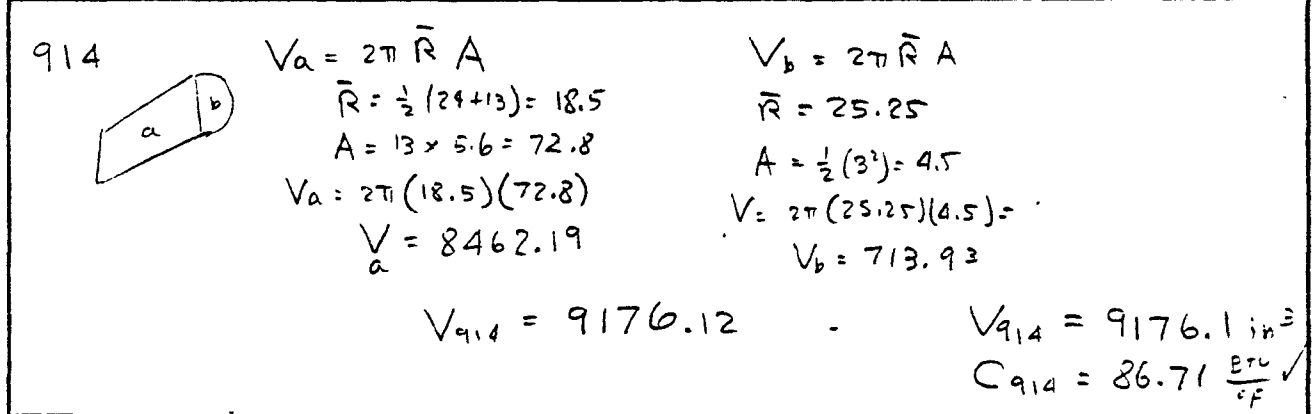 914
a b
Va = 2π R̄ A
R̄ = ½ (24+13) = 18.5
A = 13 × 5.6 = 72.8
Va = 2π (18.5)(72.8)
Va = 8462.19
Vb = 2π R̄ A
R̄ = 25.25
A = ½ (3²) = 4.5
V = 2π (25.25)(4.5) =
Vb = 713.93
V914 = 9176.12
V914 = 9176.1 in³
C914 = 86.71 BTU/°F ✓